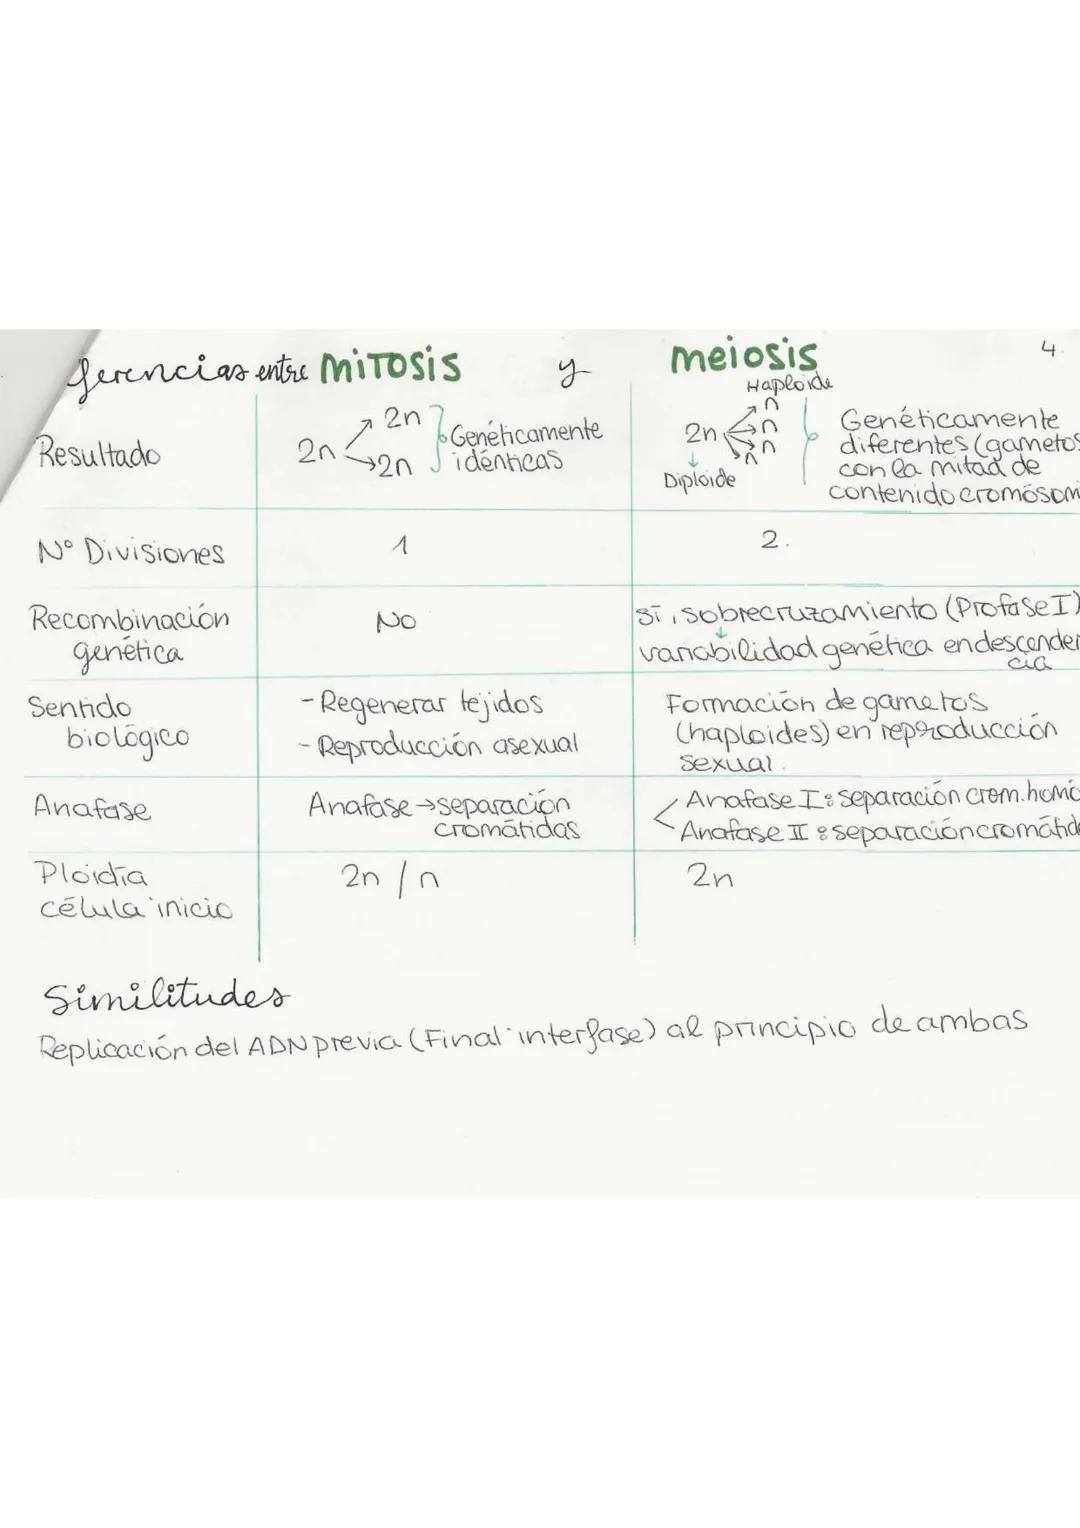 ferencias entre MITOSIS y meiosis
4.
Resultado
2n
2n
2n
Genéticamente
idénticas
Haploide
2n
n
n
n
n
Diploide
Genéticamente
diferentes (gametos
con la mitad de
contenido cromósomi
Nº Divisiones
1
2.
Recombinación
genética
No
Sí, sobrecruzamiento (Profase I)
variabilidad genética en descenden
cia
Sentido
biológico
- Regenerar tejidos
- Reproducción asexual
Formación de gametos
(haploides) en reproducción
sexual.
Anafase
Anafase → separación
cromátidas
Anafase I: separación crom. homó
Anafase II: separación cromátida
Ploidía
célula inicio
2n / n
2n
Similitudes
Replicación del ADN previa (Final interfase) al principio de ambas